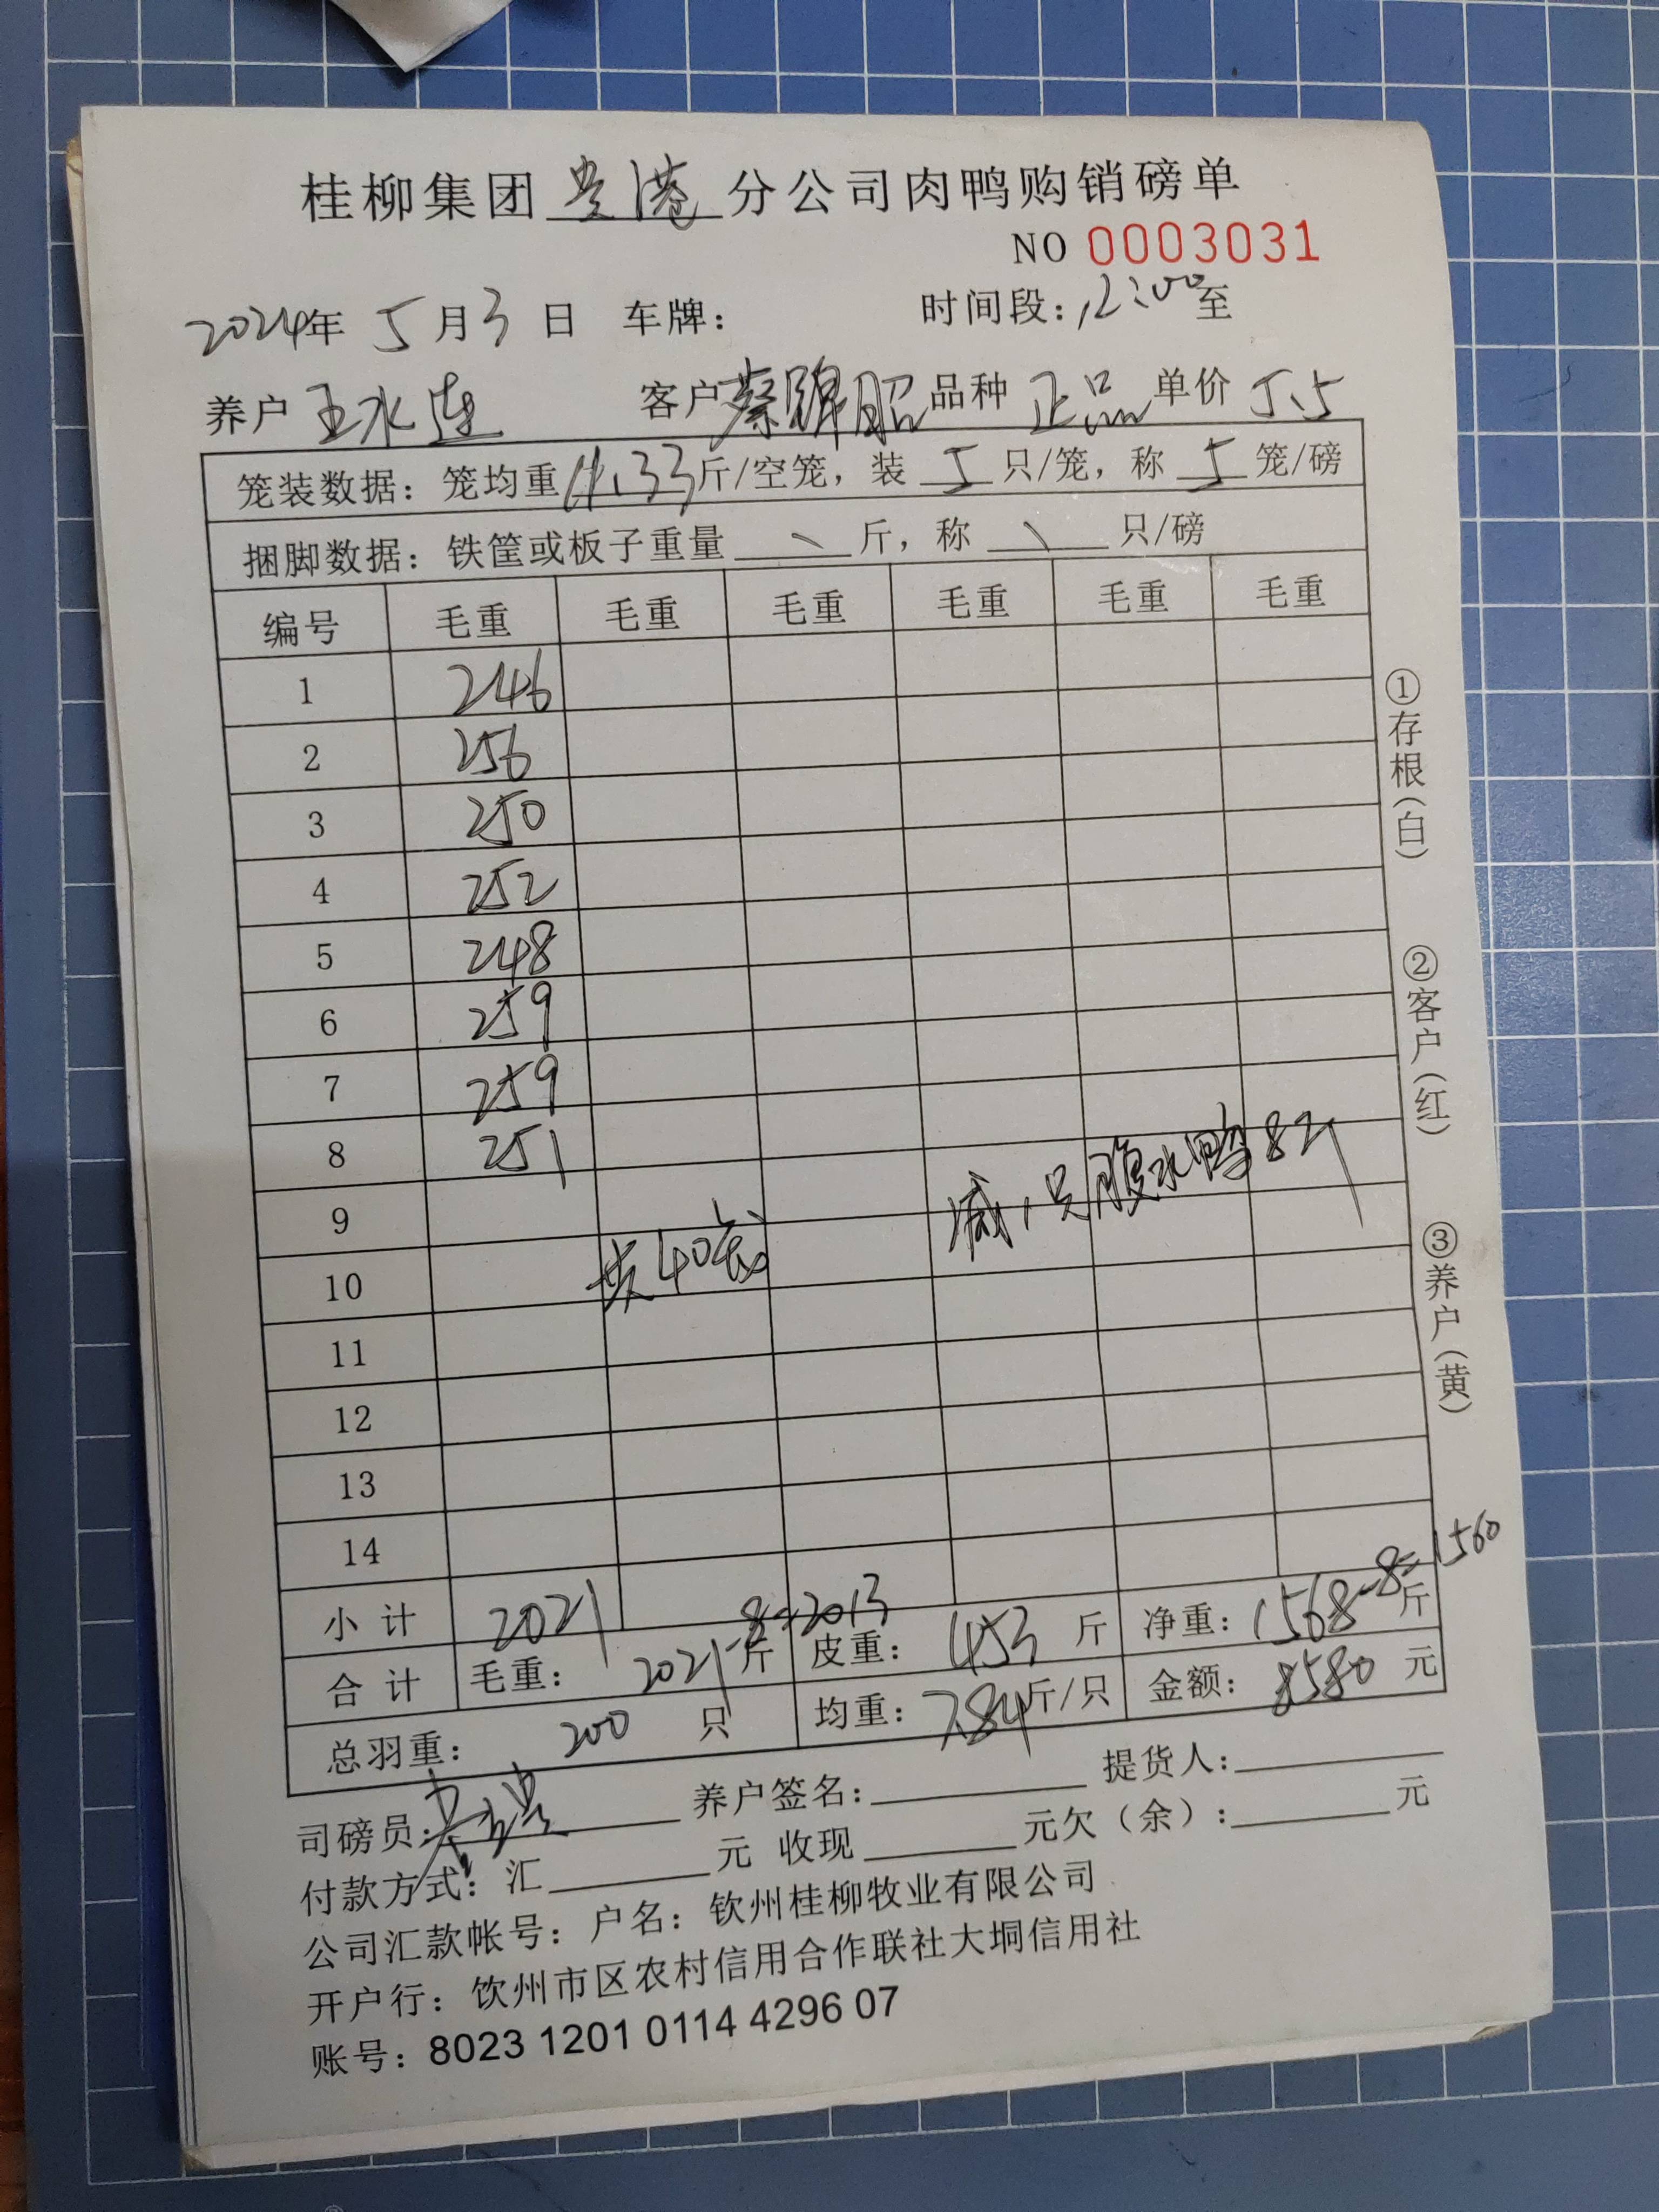 桂柳集团贵港分公司肉鸭购销磅单
NO 0003031
2024年 5月3日 车牌： 时间段：12:00至
养户 王水连 客户 蔡 昭 品种 正品 单价 5.5
笼装数据：笼均重11.33斤/空笼，装 5 只/笼，称 5 笼/磅
捆脚数据：铁筐或板子重量 \ 斤，称 \ 只/磅
编号 毛重 毛重 毛重 毛重 毛重 毛重
1 246
2 256
3 250
4 252
5 248
6 259
7 259
8 251
减1只腹水鸭8斤
9
10 共40笼
11
12
13
14
小计 2021
合计 毛重：2021-8=2013斤 皮重：453斤 净重：1568-8=1560斤
总羽重：200只 均重：7.84斤/只 金额：8580元
司磅员： 养户签名： 提货人：
付款方式：汇 元 收现 元欠（余）： 元
公司汇款帐号：户名：钦州桂柳牧业有限公司
开户行：钦州市区农村信用合作联社大垌信用社
账号：8023 1201 0114 4296 07
①存根（白）
②客户（红）
③养户（黄）